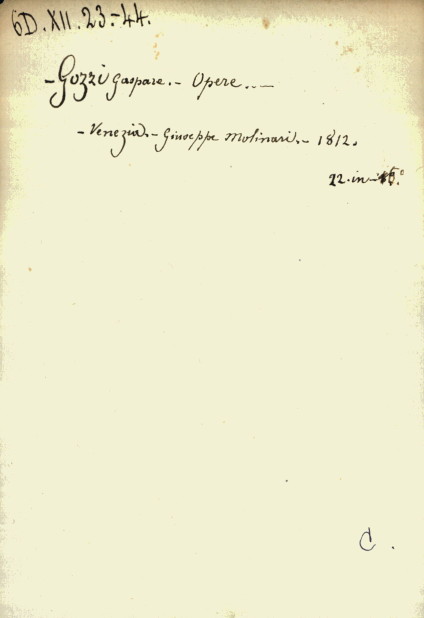 6D.XII.23.-44.
-Gozzi Gaspare.- Opere.-
-Venezia.- Giuseppe Molinari.- 1812.
22.in-16.°
C.